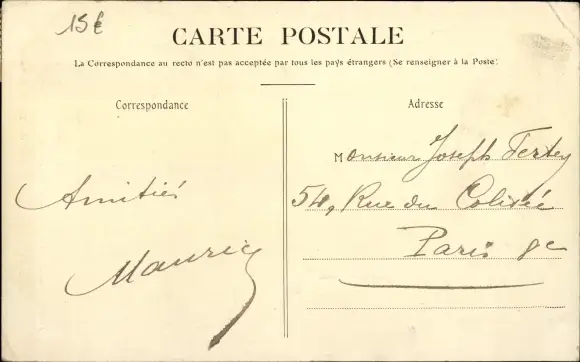 15€
CARTE POSTALE
La Correspondance au recto n'est pas acceptée par tous les pays étrangers (Se renseigner à la Poste)
Correspondance
Adresse
Monsieur Joseph
54, Rue du Colisée
Paris 8e
Amitiés
Maurice